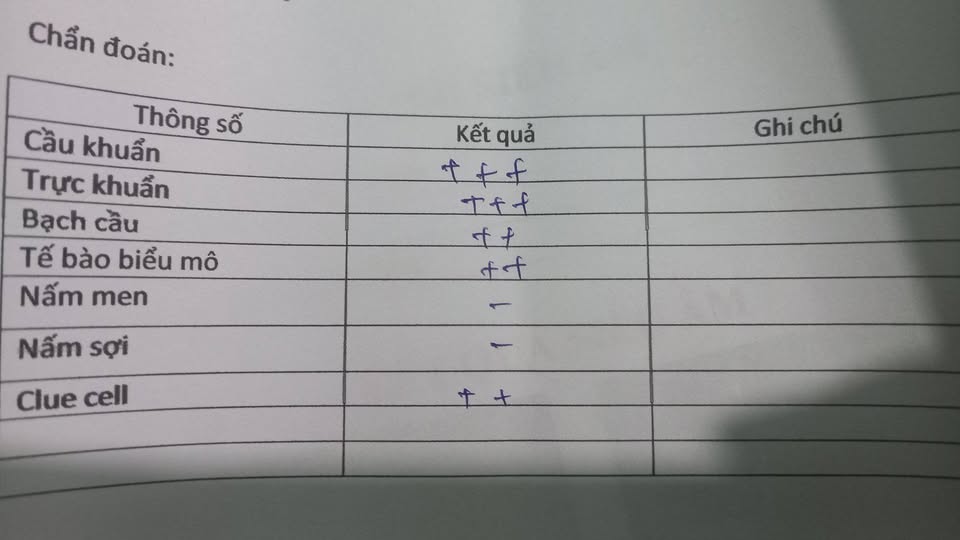 Chẩn đoán:
Thông số Kết quả Ghi chú
Cầu khuẩn +++
Trực khuẩn +++
Bạch cầu ++
Tế bào biểu mô ++
Nấm men -
Nấm sợi -
Clue cell ++